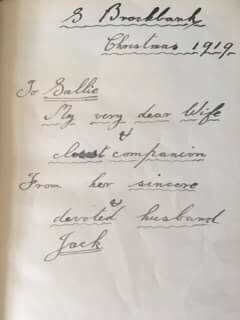 S Brockbank
Christmas 1919.
To Sallie
My very dear Wife
&
closest companion
From her sincere
&
devoted husband
Jack